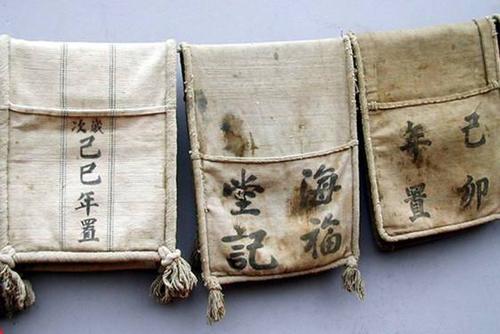 歲次
己巳年置
海福
堂記
己卯
年置